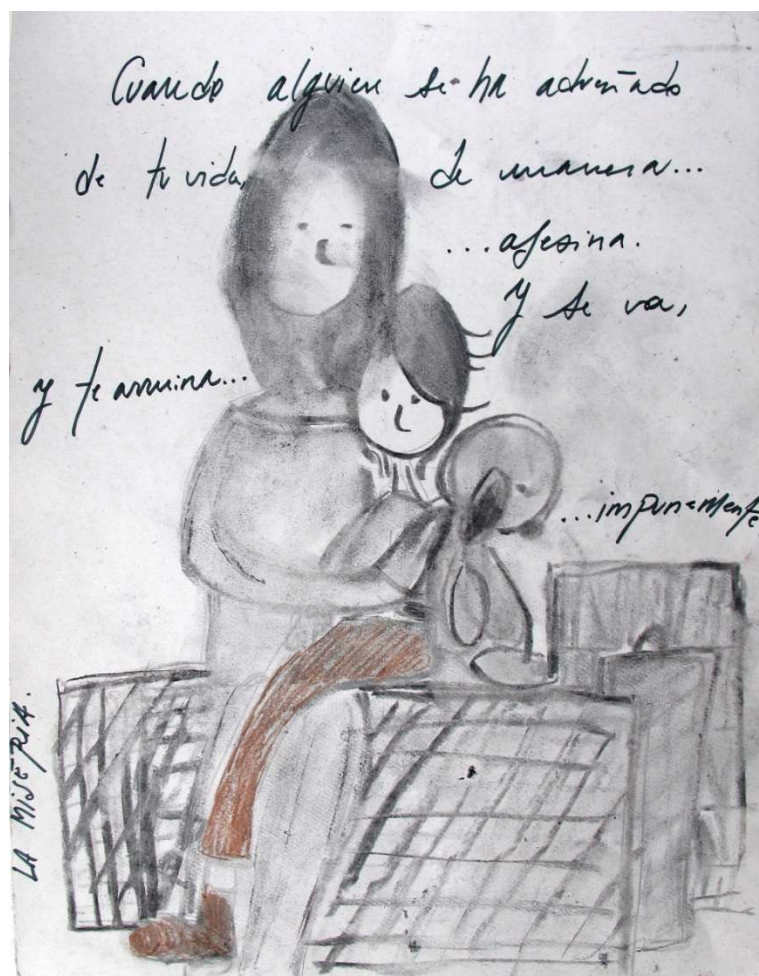 Cuando alguien se ha adueñado
de tu vida, de manera...
...asesina.
Y se va,
y te arruina...
...impunemente
LA MISERIA.